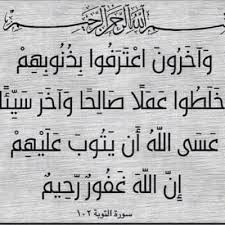 بسم الله الرحمن الرحيم
وَآخَرُونَ اعْتَرَفُوا بِذُنُوبِهِمْ
خَلَطُوا عَمَلًا صَالِحًا وَآخَرَ سَيِّئًا
عَسَى اللَّهُ أَن يَتُوبَ عَلَيْهِمْ
إِنَّ اللَّهَ غَفُورٌ رَّحِيمٌ
سورة التوبة ١٠٢